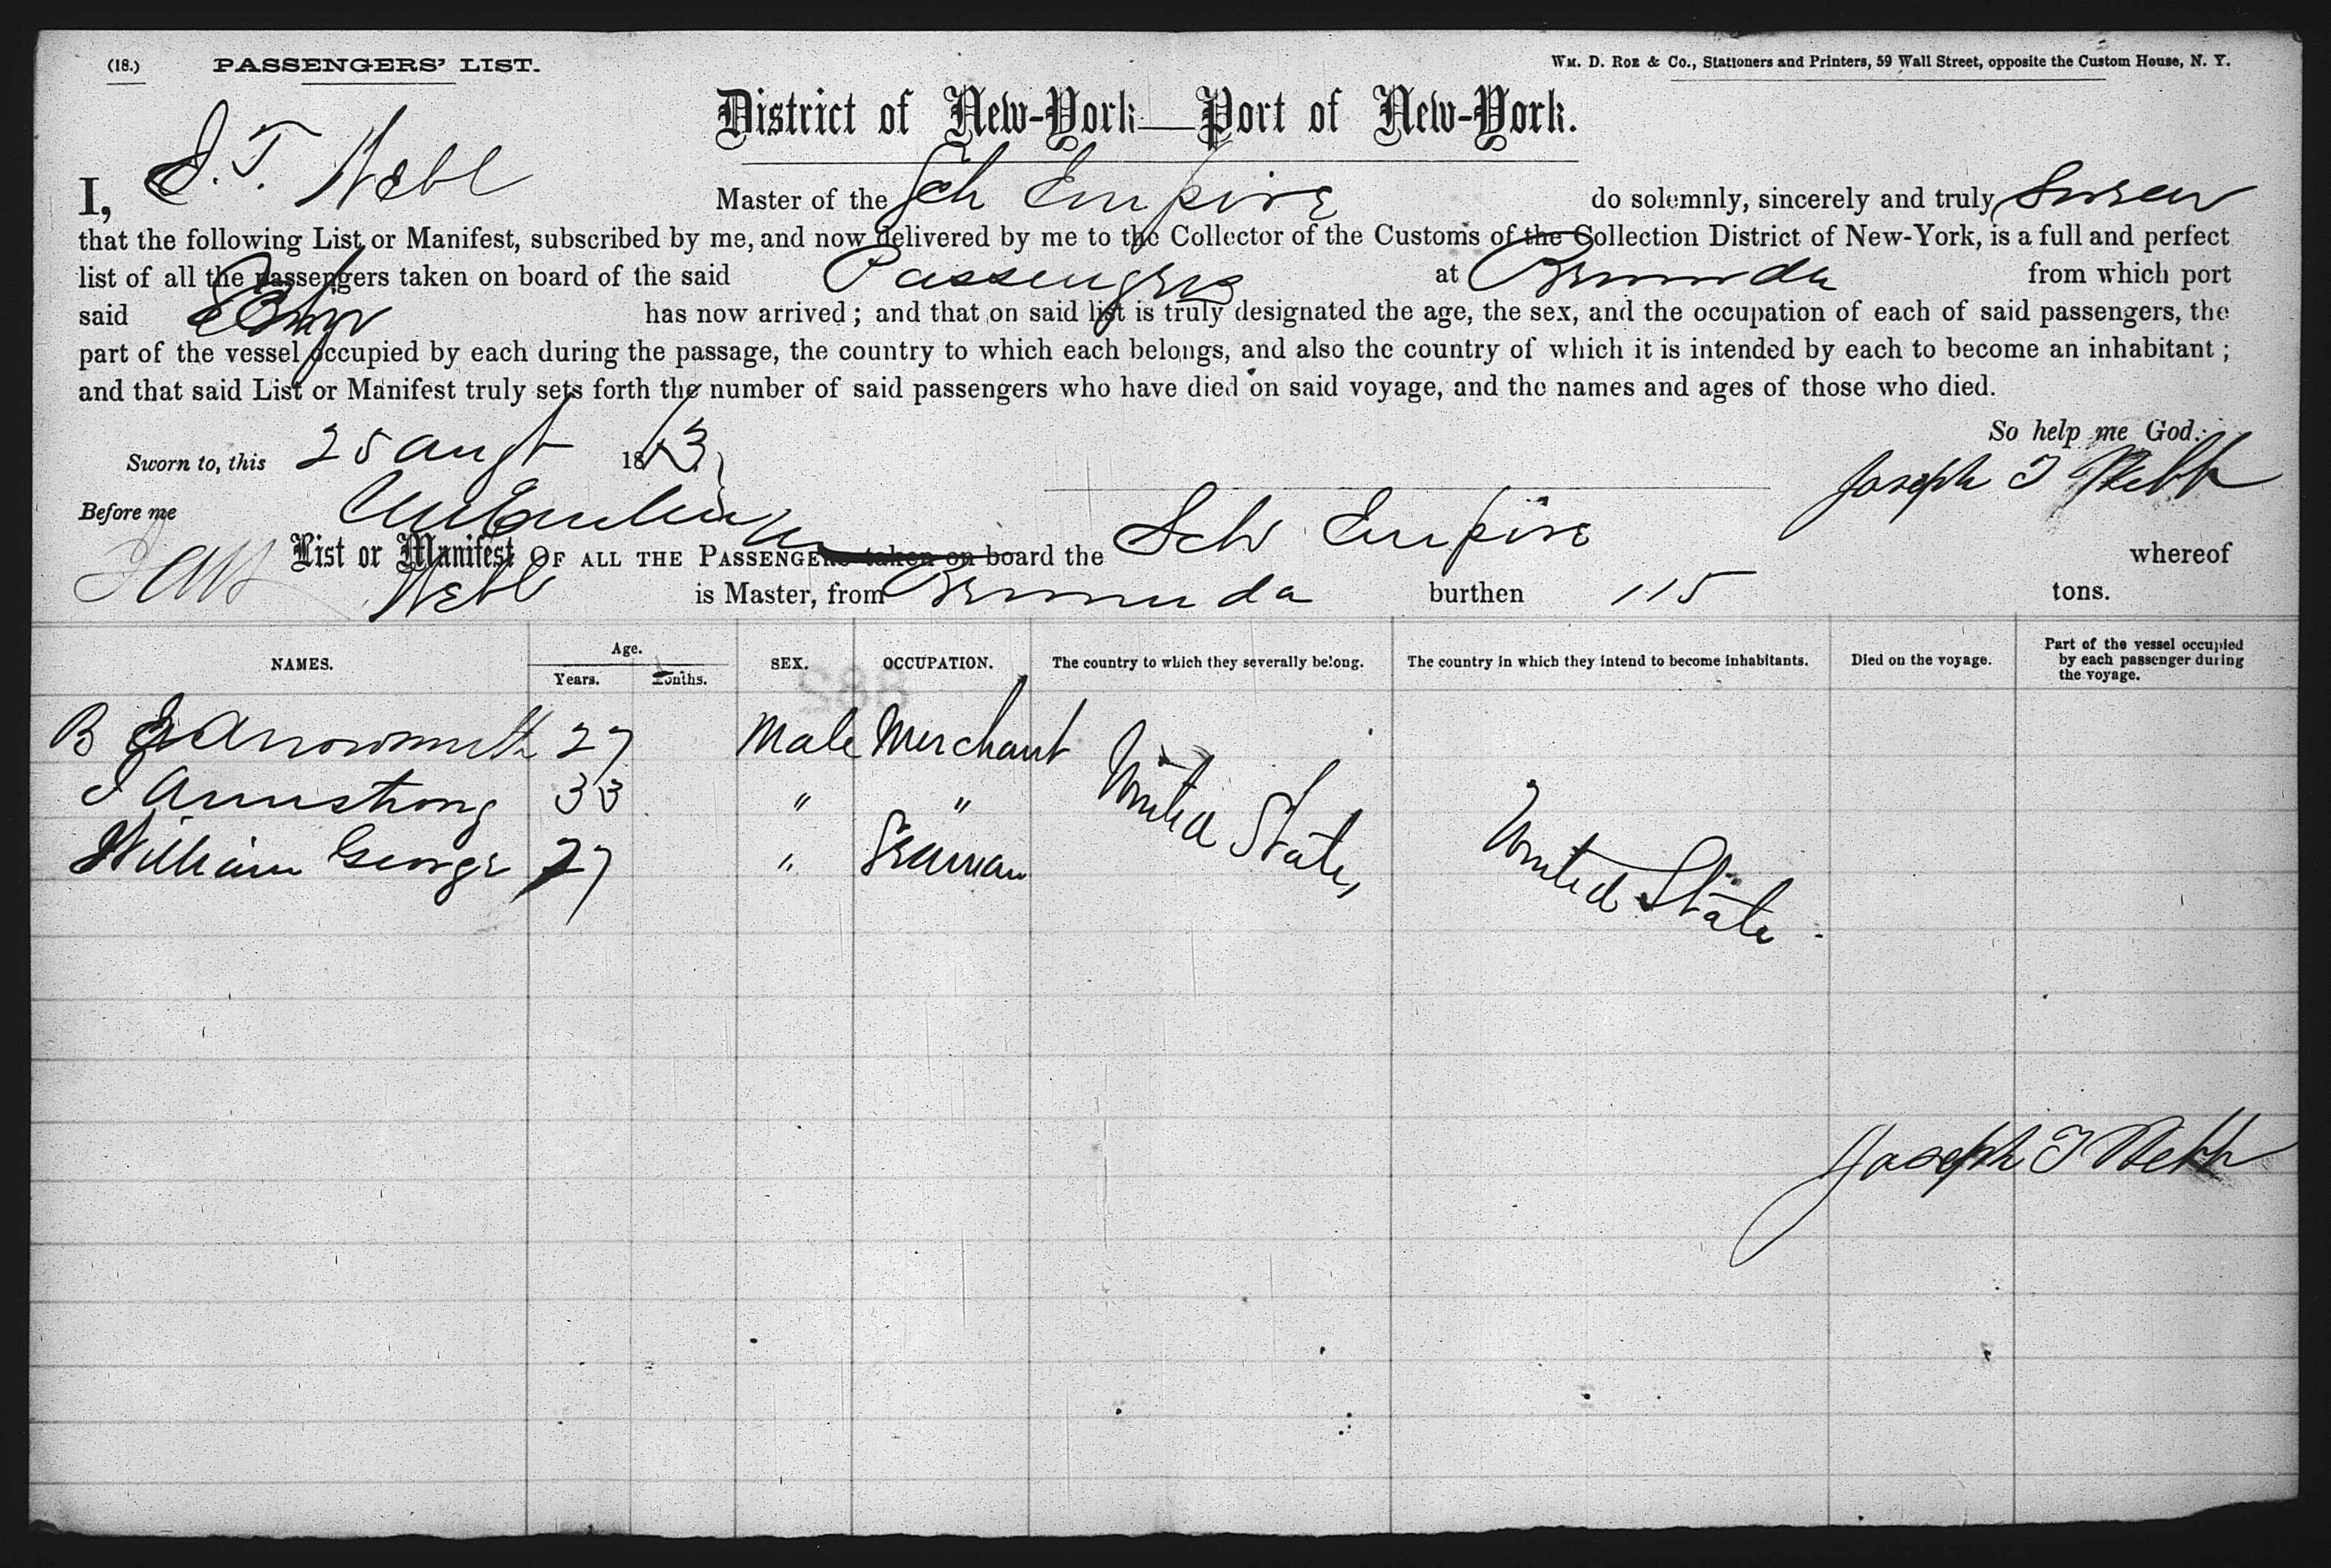 (18.) PASSENGERS' LIST. Wm. D. Roe & Co., Stationers and Printers, 59 Wall Street, opposite the Custom House, N. Y.
District of New-York—Port of New-York.
I, J. T. Webb Master of the Sch Empire do solemnly, sincerely and truly swear
that the following List or Manifest, subscribed by me, and now delivered by me to the Collector of the Customs of the Collection District of New-York, is a full and perfect
list of all the passengers taken on board of the said Passengers at Bermuda from which port
said has now arrived; and that on said list is truly designated the age, the sex, and the occupation of each of said passengers, the
part of the vessel occupied by each during the passage, the country to which each belongs, and also the country of which it is intended by each to become an inhabitant;
and that said List or Manifest truly sets forth the number of said passengers who have died on said voyage, and the names and ages of those who died.
So help me God.
Sworn to, this 25 augt 18 Joseph T Webb
Before me
List or Manifest OF ALL THE PASSENGERS taken on board the Sch Empire whereof
Webb is Master, from Bermuda burthen 115 tons.
NAMES. Age. Years. Months. SEX. OCCUPATION. The country to which they severally belong. The country in which they intend to become inhabitants. Died on the voyage. Part of the vessel occupied by each passenger during the voyage.
B Arrowsmith 27 Male Merchant United States United State
J Armstrong 33 " "
William George 27 " Seaman
Joseph T Webb